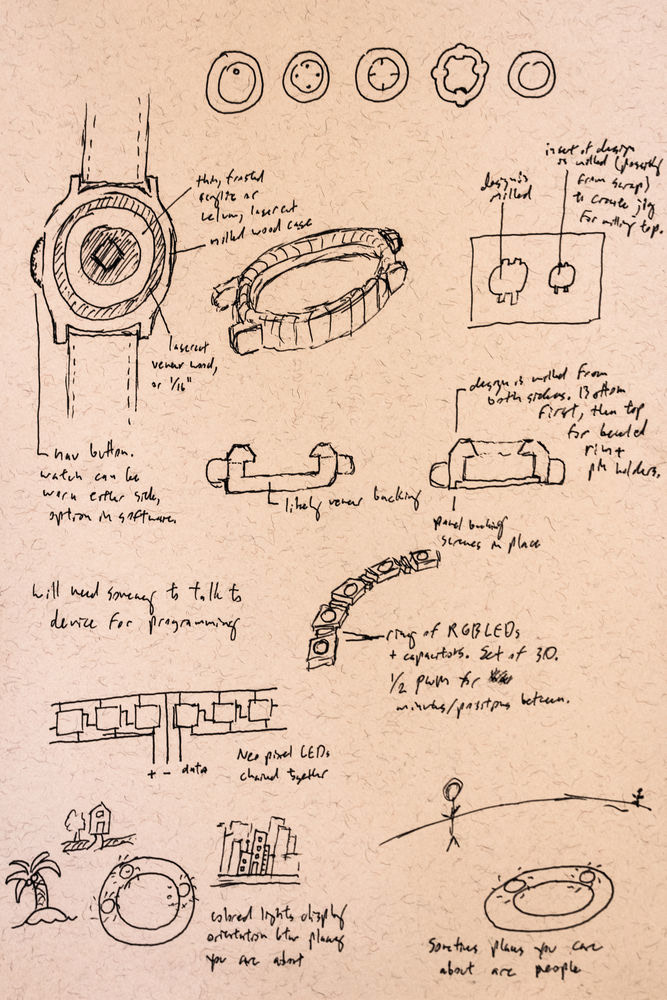 thin, frosted
acrylic or
vellum, lasercut
milled wood case
lasercut
veneer wood,
or 1/16"
design is
milled
inset of design
is milled (possibly
from scrap)
to create jig
for milling top.
nav button.
watch can be
worn either side,
option in software.
design is milled from
both sides. Bottom
first, then top
for beveled
rim +
pin holders.
likely veneer backing
panel backing
screws in place
will need someway to talk to
device for programming
ring of RGB LEDs
+ capacitors. Set of 30.
1/2 pwm for
minutes/positions between.
+ - data
Neo pixel LEDs
chained together
colored lights display
orientation btw places
you are about
Sometimes places you care
about are people